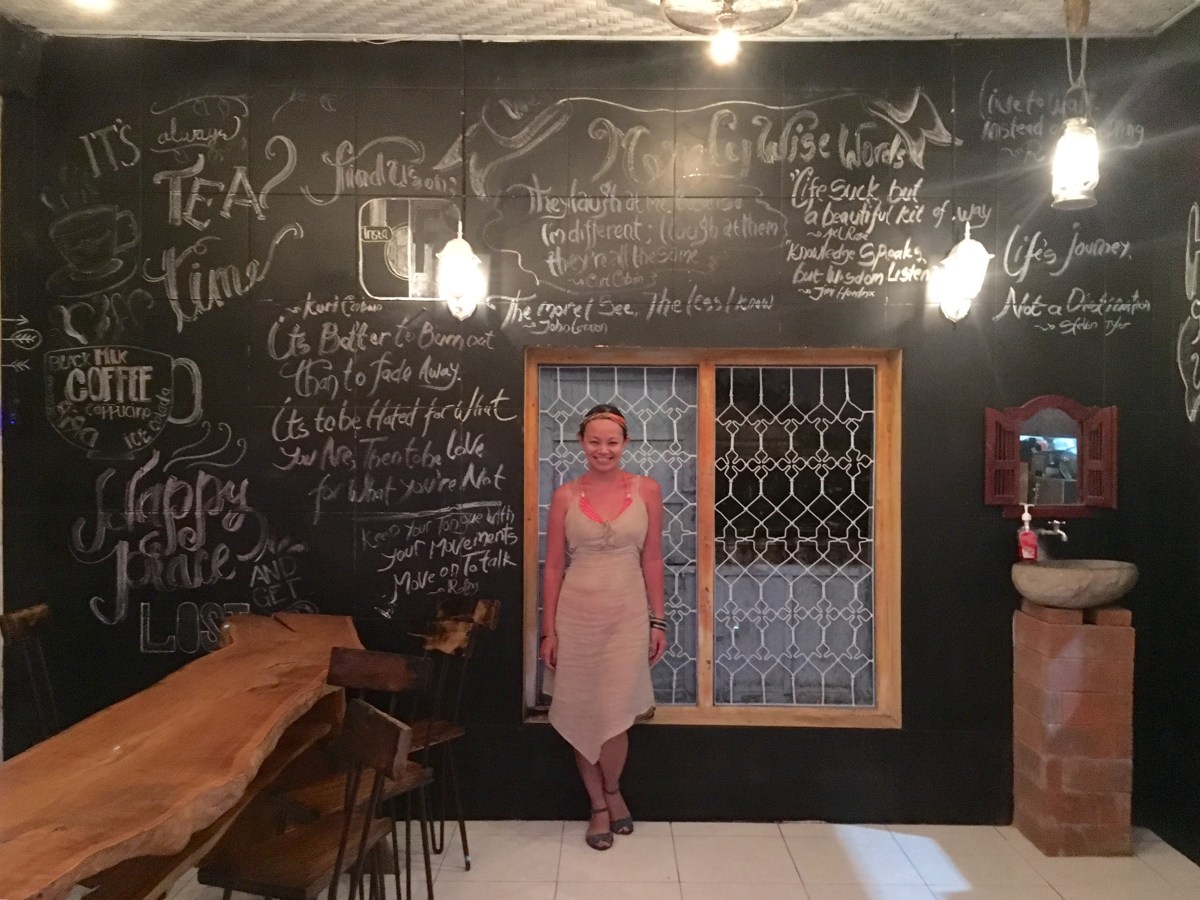 IT'S
always
TEA
Time
find us on:
Insta
BLACK MILK
COFFEE
Cappucino
Happy
place
AND
GET
LOST
~ Kurt Cobain
It's Better to Burn out
than to fade Away.
it's to be Hated for What
you Are, Then to be Love
for What you're Not
Keep Your Tongue with
your Movements
Move on To talk
Wise Words
They laugh at me because
I'm different; I laugh at them
they're all the same
The more I See, The less I know
~ John Lennon
"Life suck but
a beautiful kit of way
Knowledge Speaks,
but Wisdom Listen
~ Jimi Hendrix
Live to
instead of
Life's Journey,
Not a Destination